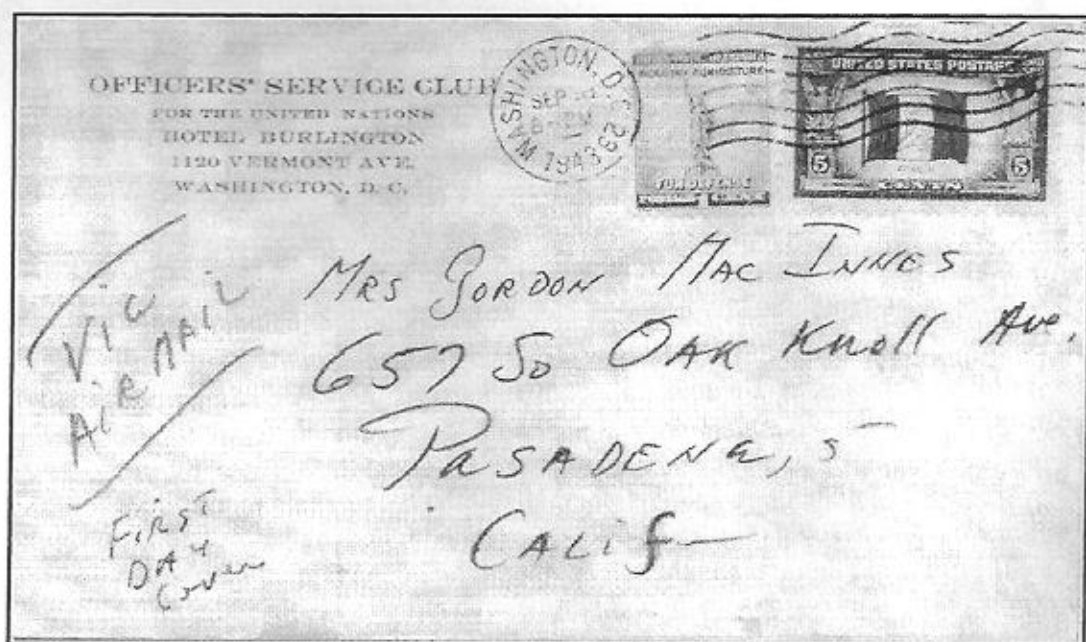 OFFICERS' SERVICE CLUB
FOR THE UNITED NATIONS
HOTEL BURLINGTON
1120 VERMONT AVE.
WASHINGTON, D. C.
WASHINGTON, D.C.
SEP
1943
INDUSTRY AGRICULTURE
FOR DEFENSE
UNITED STATES POSTAGE
5 5
CENTS
VIA
AIR MAIL
FIRST
DAY
Cover
MRS GORDON MAC INNES
657 SO OAK Knoll Ave.
PASADENA, 5
CALIF